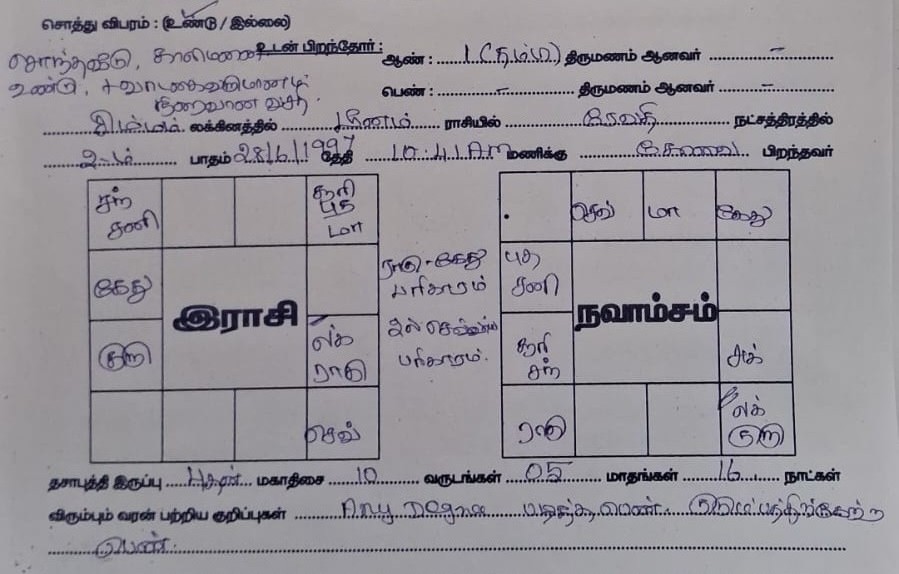 சொத்து விபரம் : (உண்டு / இல்லை)
சொந்தவீடு, காலிமனை உடன் பிறந்தோர் : ஆண் : 1 (தம்பி) திருமணம் ஆனவர் –
உண்டு, + வாடகை
நிறைவான வசதி. பெண் : – திருமணம் ஆனவர் –
சிம்மம் லக்கினத்தில் மீனம் ராசியில் ரேவதி நட்சத்திரத்தில்
2-ம் பாதம் 28/6/1997 தேதி 10.41 AM மணிக்கு கோவை பிறந்தவர்
சந் சனி
சூரி புத மா
கேது
குரு
இராசி
லக் ராகு
செவ்
ராகு-கேது
பரிகாரம்
பரிகாரம்.
செவ் மா கேது
புத சனி
சூரி சந்
நவாம்சம்
சுக்
ராகு
லக் குரு
தசாபுத்தி இருப்பு புதன் மகாதிசை 10 வருடங்கள் 05 மாதங்கள் 16 நாட்கள்
விரும்பும் வரன் பற்றிய குறிப்புகள் Any Degree படித்த பெண். குடும்பத்திற்கேற்ற
பெண்.